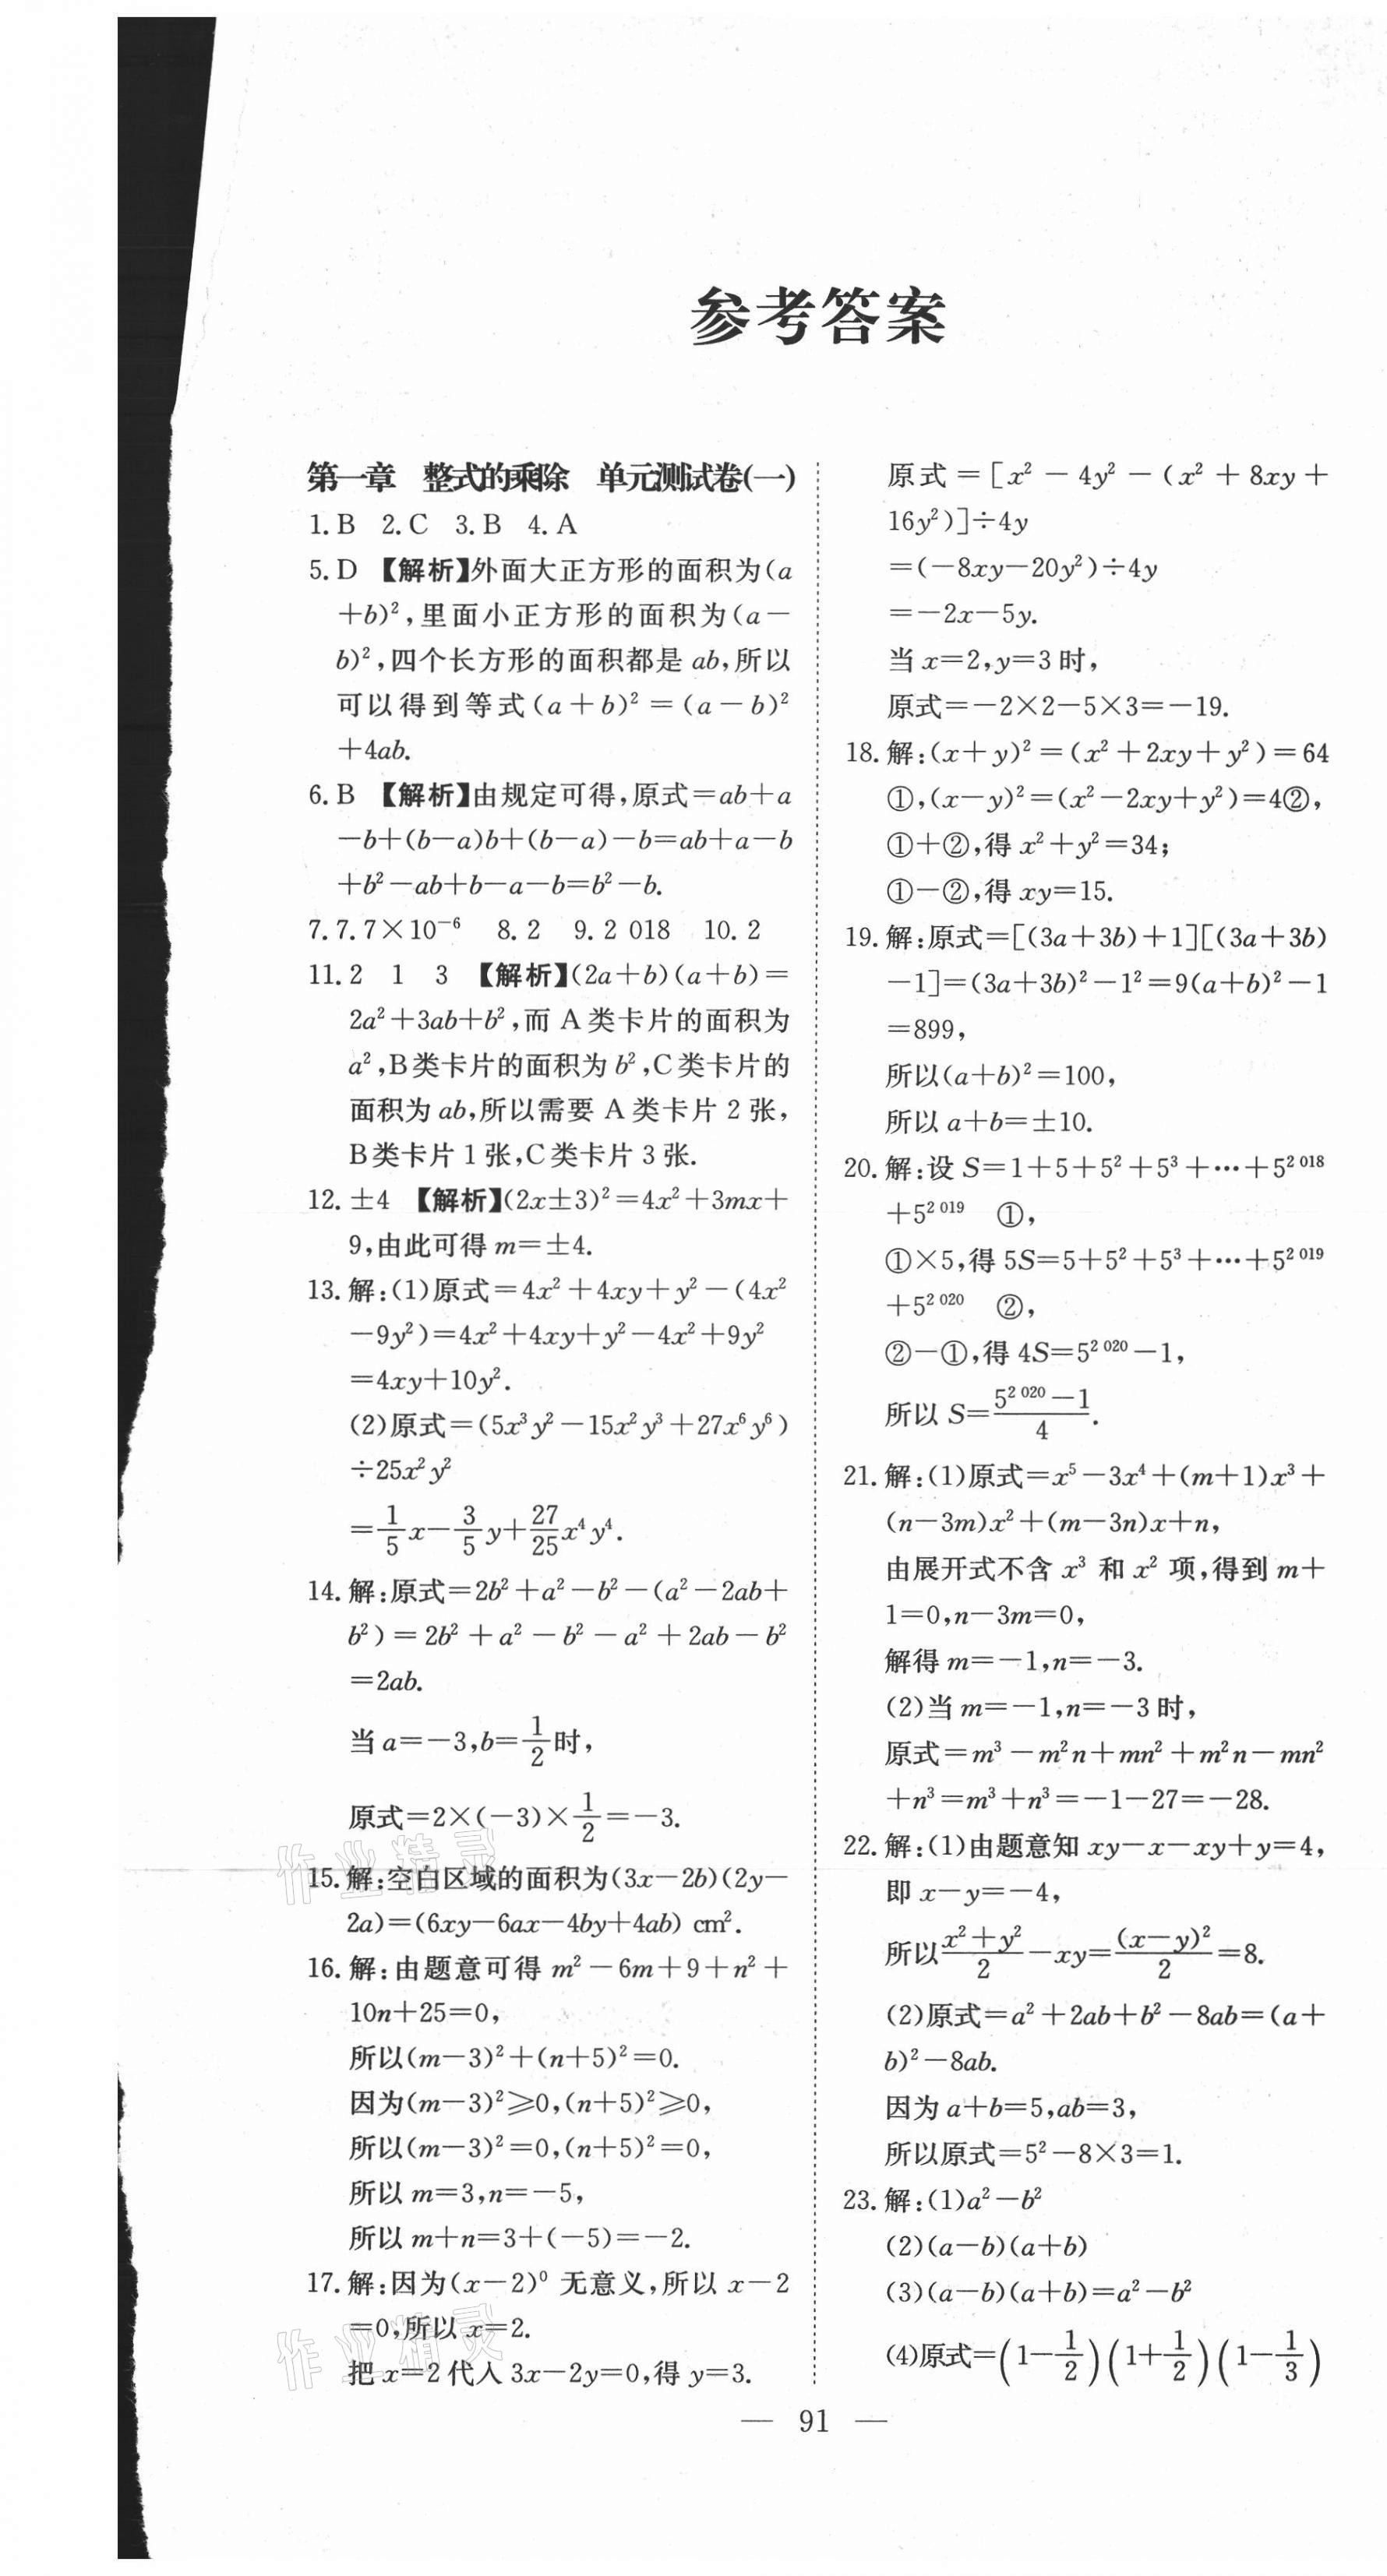 参考答案
第一章 整式的乘除 单元测试卷(一)
1.B 2.C 3.B 4.A
5.D 【解析】外面大正方形的面积为(a
+b)²,里面小正方形的面积为(a-
b)²,四个长方形的面积都是 ab,所以
可以得到等式(a+b)²=(a-b)²
+4ab.
6.B 【解析】由规定可得,原式=ab+a
-b+(b-a)b+(b-a)-b=ab+a-b
+b²-ab+b-a-b=b²-b.
7.7.7×10⁻⁶ 8.2 9.2 018 10.2
11.2 1 3 【解析】(2a+b)(a+b)=
2a²+3ab+b²,而 A 类卡片的面积为
a²,B类卡片的面积为 b²,C类卡片的
面积为 ab,所以需要 A 类卡片 2 张,
B类卡片 1 张,C类卡片 3 张.
12.±4 【解析】(2x±3)²=4x²+3mx+
9,由此可得 m=±4.
13.解:(1)原式=4x²+4xy+y²-(4x²
-9y²)=4x²+4xy+y²-4x²+9y²
=4xy+10y².
(2)原式=(5x³y²-15x²y³+27x⁶y⁶)
÷25x²y²
=1/5x-3/5y+27/25x⁴y⁴.
14.解:原式=2b²+a²-b²-(a²-2ab+
b²)=2b²+a²-b²-a²+2ab-b²
=2ab.
当 a=-3,b=1/2时,
原式=2×(-3)×1/2=-3.
15.解:空白区域的面积为(3x-2b)(2y-
2a)=(6xy-6ax-4by+4ab) cm².
16.解:由题意可得 m²-6m+9+n²+
10n+25=0,
所以(m-3)²+(n+5)²=0.
因为(m-3)²≥0,(n+5)²≥0,
所以(m-3)²=0,(n+5)²=0,
所以 m=3,n=-5,
所以 m+n=3+(-5)=-2.
17.解:因为(x-2)⁰ 无意义,所以 x-2
=0,所以 x=2.
把 x=2 代入 3x-2y=0,得 y=3.
原式=[x²-4y²-(x²+8xy+
16y²)]÷4y
=(-8xy-20y²)÷4y
=-2x-5y.
当 x=2,y=3 时,
原式=-2×2-5×3=-19.
18.解:(x+y)²=(x²+2xy+y²)=64
①,(x-y)²=(x²-2xy+y²)=4②,
①+②,得 x²+y²=34;
①-②,得 xy=15.
19.解:原式=[(3a+3b)+1][(3a+3b)
-1]=(3a+3b)²-1²=9(a+b)²-1
=899,
所以(a+b)²=100,
所以 a+b=±10.
20.解:设 S=1+5+5²+5³+…+5²⁰¹⁸
+5²⁰¹⁹ ①,
①×5,得 5S=5+5²+5³+…+5²⁰¹⁹
+5²⁰²⁰ ②,
②-①,得 4S=5²⁰²⁰-1,
所以 S=(5²⁰²⁰-1)/4.
21.解:(1)原式=x⁵-3x⁴+(m+1)x³+
(n-3m)x²+(m-3n)x+n,
由展开式不含 x³ 和 x² 项,得到 m+
1=0,n-3m=0,
解得 m=-1,n=-3.
(2)当 m=-1,n=-3 时,
原式=m³-m²n+mn²+m²n-mn²
+n³=m³+n³=-1-27=-28.
22.解:(1)由题意知 xy-x-xy+y=4,
即 x-y=-4,
所以(x²+y²)/2-xy=(x-y)²/2=8.
(2)原式=a²+2ab+b²-8ab=(a+
b)²-8ab.
因为 a+b=5,ab=3,
所以原式=5²-8×3=1.
23.解:(1)a²-b²
(2)(a-b)(a+b)
(3)(a-b)(a+b)=a²-b²
(4)原式=(1-1/2)(1+1/2)(1-1/3)
— 91 —
作业精灵
作业精灵